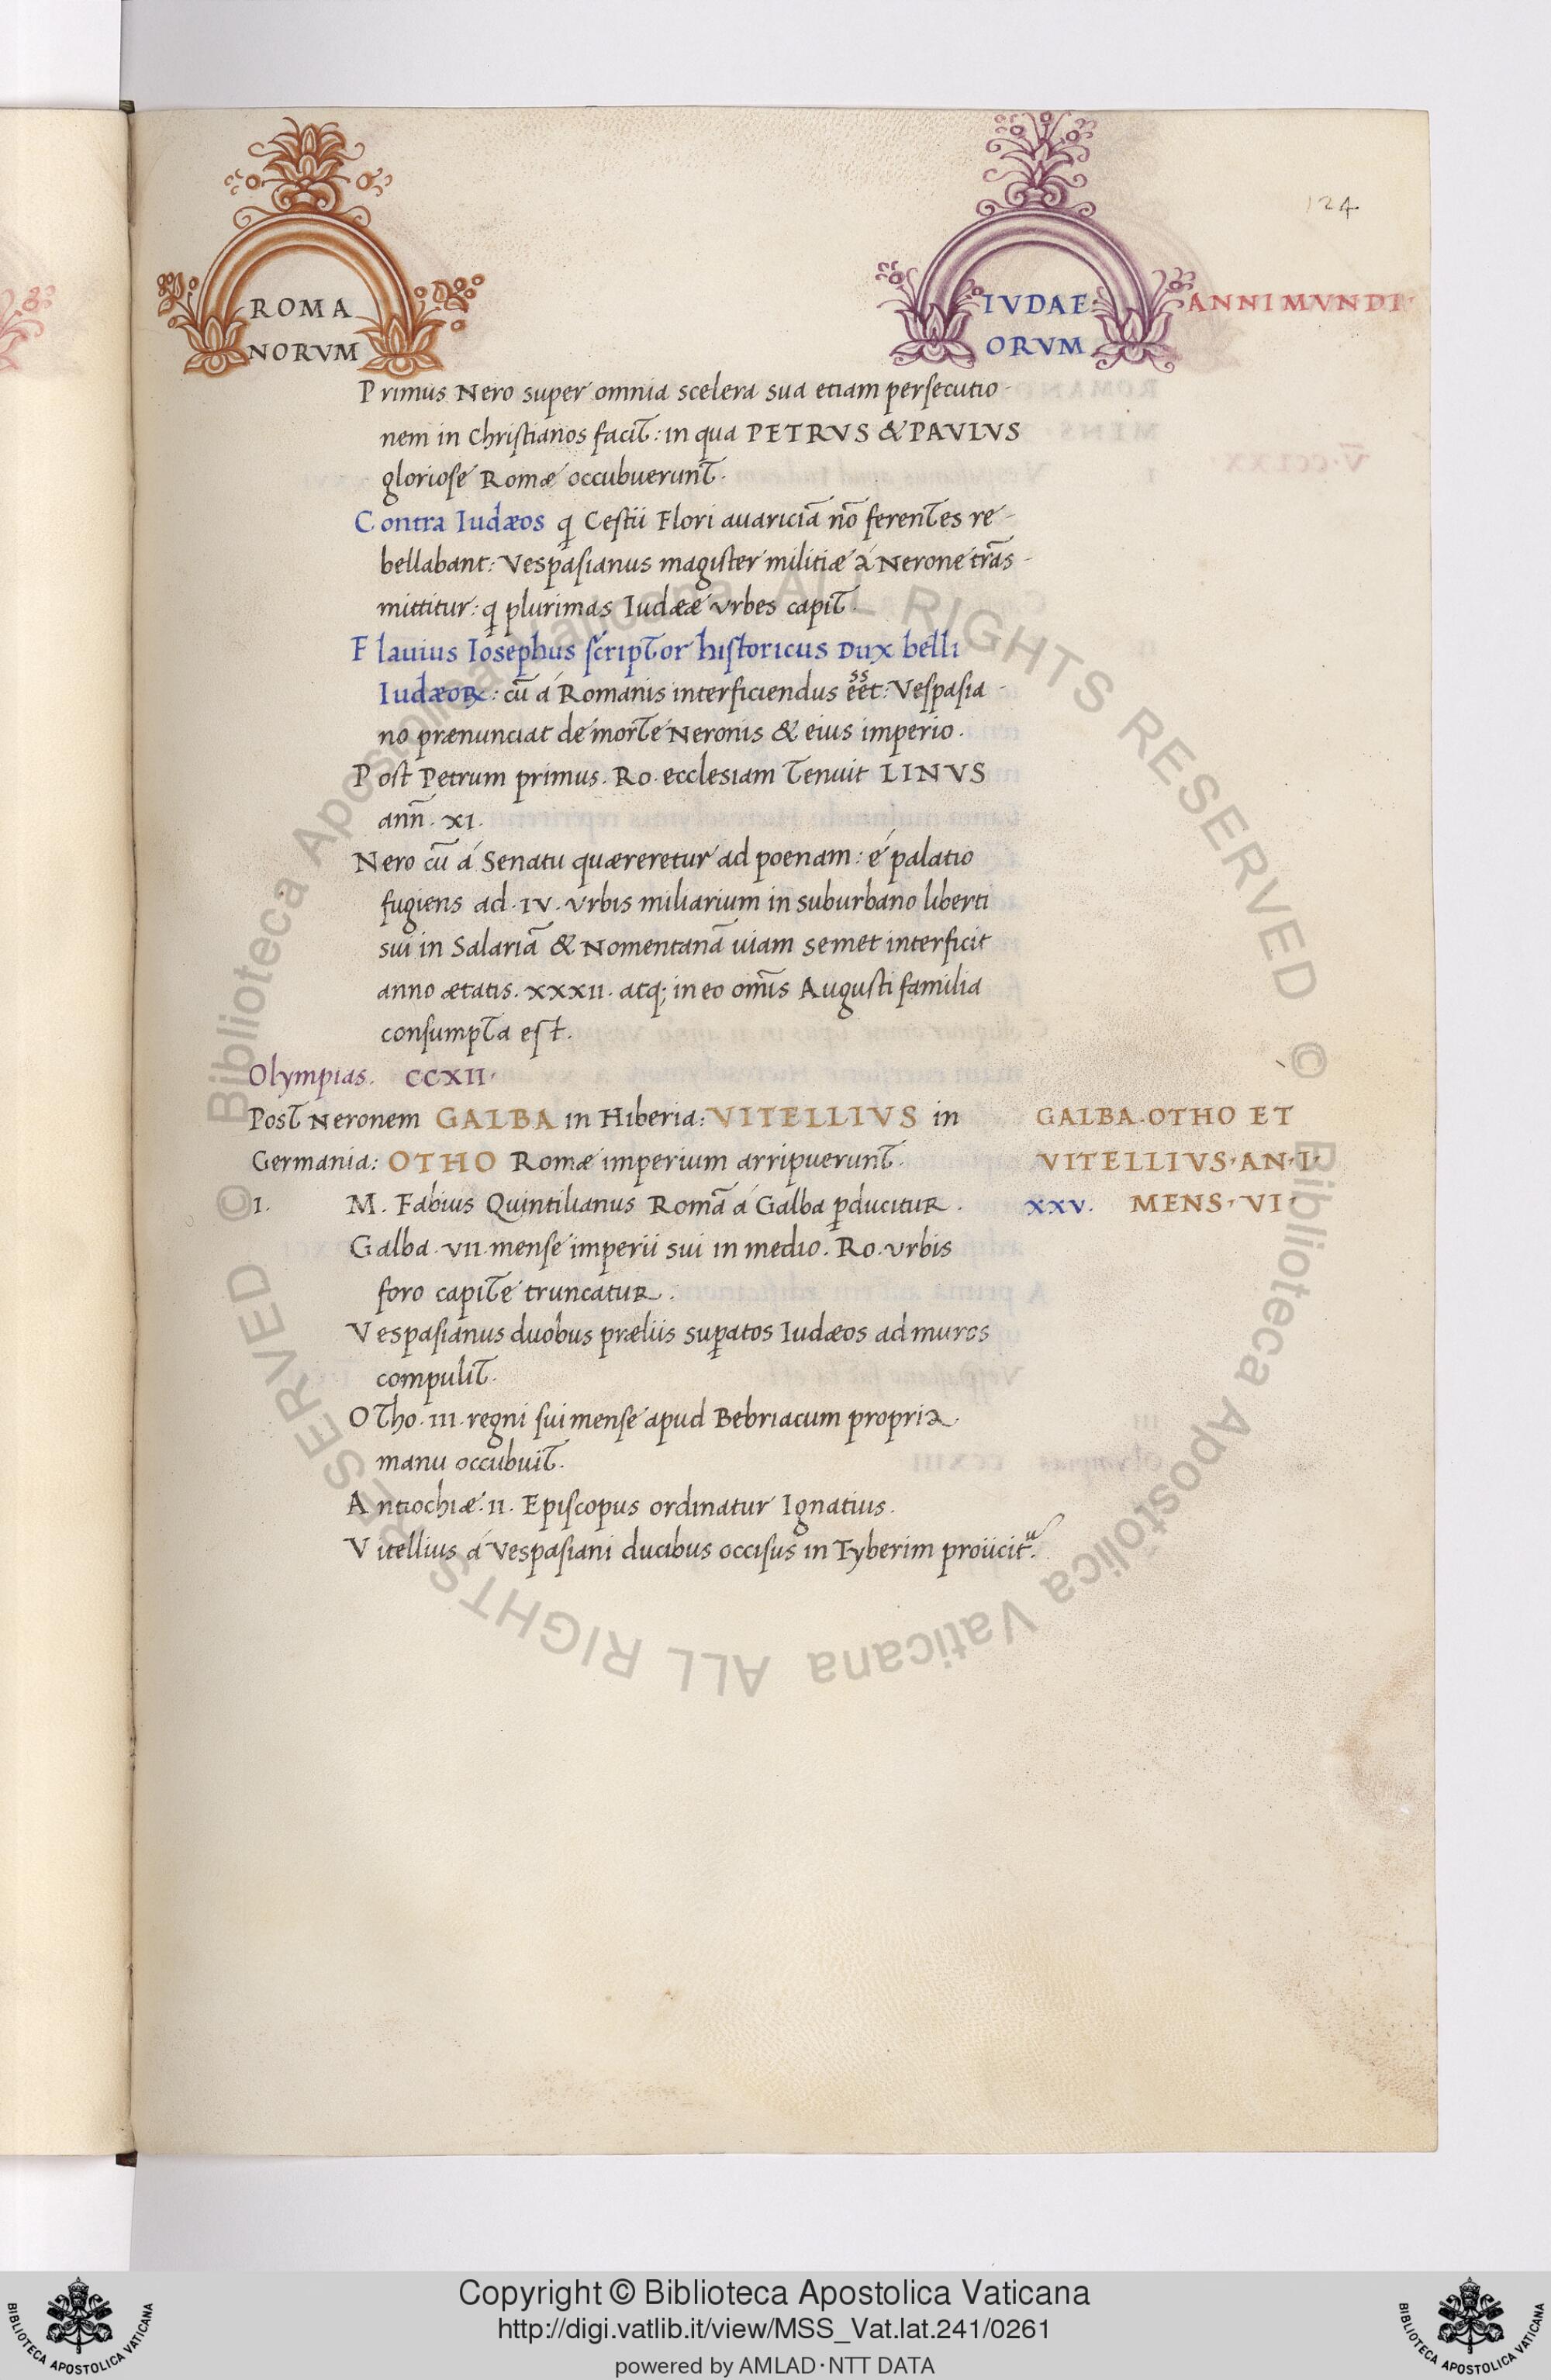 124
ROMA
NORVM
IVDAE
ORVM
ANNI MVNDI·
Primus Nero super omnia scelera sua etiam persecutio-
nem in Christianos facit: in qua PETRVS & PAVLVS
gloriose Romæ occubuerunt.
Contra Iudæos q̨ Cestii Flori auariciā nō ferentes re-
bellabant: Vespasianus magister militiæ á Nerone trās-
mittitur: q̨ plurimas Iudææ vrbes capit.
Flauius Iosephus scriptor historicus Dux belli
Iudæoꝝ: cū á Romanis interficiendus eēt: Vespasia-
no prænunciat de morte Neronis & eius imperio.
Post Petrum primus. Ro. ecclesiam tenuit LINVS
ann̄. XI.
Nero cū á Senatu quæreretur ad poenam: é palatio
fugiens ad. IV. vrbis miliarium in suburbano liberti
sui in Salariā & Nomentanā uiam semet interficit
anno ætatis. XXXII. atq; in eo om̄is Augusti familia
consumpta est.
Olympias. CCXII.
Post Neronem GALBA in Hiberia: VITELLIVS in GALBA·OTHO ET
Germania: OTHO Romæ imperium arripuerunt. VITELLIVS·AN·I·
I. M. Fabius Quintilianus Romā á Galba ꝑducitur. XXV. MENS·VI·
Galba. VII. mense imperii sui in medio. Ro. vrbis
foro capite truncatur.
Vespasianus duobus præliis suꝑatos Iudæos ad muros
compulit.
Otho. III. regni sui mense apud Bebriacum propria
manu occubuit.
Antiochiæ. II. Episcopus ordinatur Ignatius.
Vitellius á Vespasiani ducibus occisus in Tyberim proiicitᵘ.
© Biblioteca Apostolica Vaticana ALL RIGHTS RESERVED
© Biblioteca Apostolica Vaticana ALL RIGHTS RESERVED
Copyright © Biblioteca Apostolica Vaticana
http://digi.vatlib.it/view/MSS_Vat.lat.241/0261
powered by AMLAD·NTT DATA
BIBLIOTECA APOSTOLICA VATICANA
BIBLIOTECA APOSTOLICA VATICANA